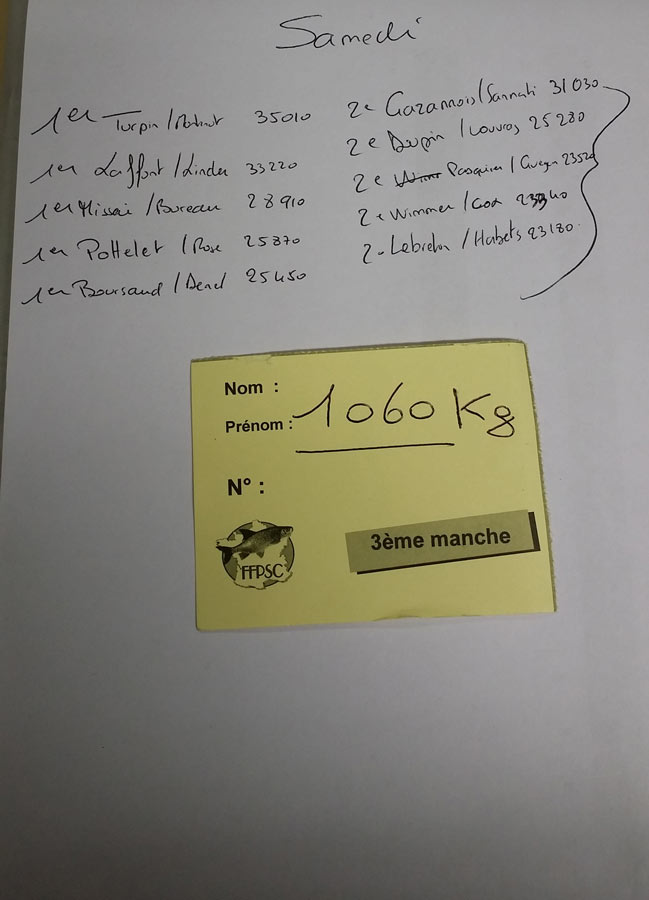 Samedi
1er Turpin / 35010
1er Laffont / Linden 33220
1er Missaï / Bureau 28910
1er Pottelet / Rose 25870
1er Boursaud / Denel 25450
2e Gazannois / Sannati 31030
2e Dupin / Louvros 25280
2e Pasquier / Guegen 23520
2e Wimmer / Cox
2e Lebreton / Habets 23180
Nom :
Prénom : 1060 Kg
N° :
FFPSC
3ème manche